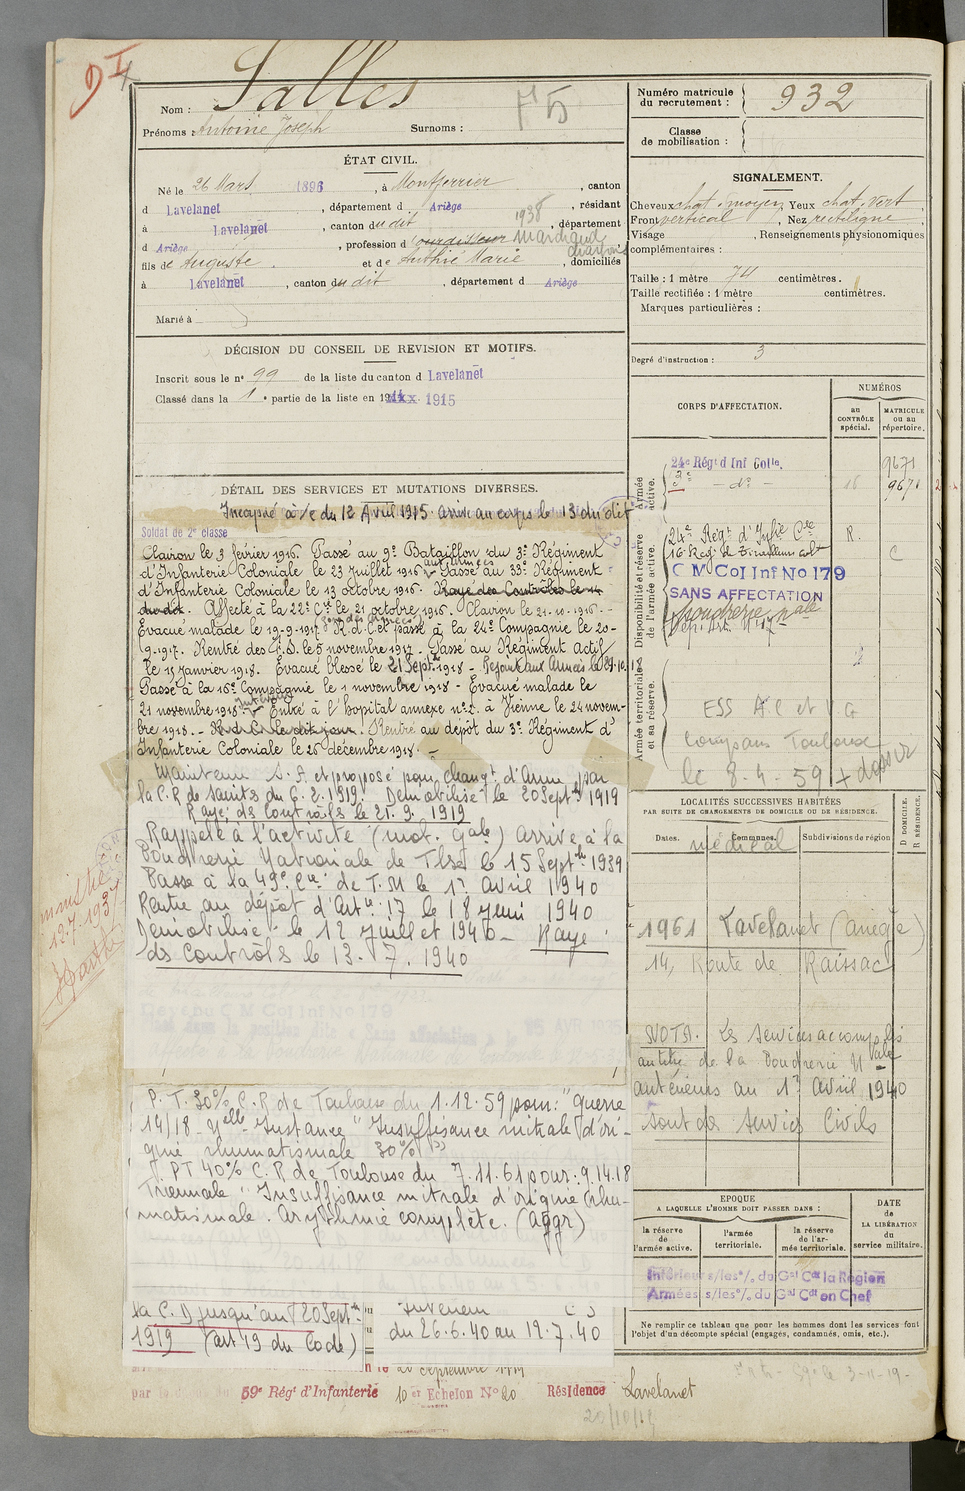 Nom : Salles
75
Prénoms : Antoine Joseph Surnoms :
Numéro matricule
du recrutement :
932
Classe
de mobilisation :
ÉTAT CIVIL.
Né le 26 Mars 1896, à Montferrier, canton
d Lavelanet, département d Ariège, résidant
à Lavelanet, canton du dit, département
d Ariège, profession d ourdisseur 1938 Marchand
fils de Auguste et de Authié Marie, domiciliés
à Lavelanet, canton du dit, département d Ariège
Marié à
SIGNALEMENT.
Cheveux chat. moyen, Yeux chat. vert,
Front vertical, Nez rectiligne,
Visage , Renseignements physionomiques
complémentaires :
Taille : 1 mètre 74 centimètres.
Taille rectifiée : 1 mètre centimètres.
Marques particulières :
Degré d'instruction : 3
DÉCISION DU CONSEIL DE REVISION ET MOTIFS.
Inscrit sous le n° 99 de la liste du canton d Lavelanet
Classé dans la 1e partie de la liste en 1915
DÉTAIL DES SERVICES ET MUTATIONS DIVERSES.
Incorporé à /c du 12 Avril 1915. arrivé au corps le 13 du dit
Soldat de 2e classe
Clairon le 3 février 1916. Passé au 9e Bataillon du 3e Régiment
d'Infanterie Coloniale le 23 juillet 1916 aux armées Passé au 33e Régiment
d'Infanterie Coloniale le 13 octobre 1916. Rayé des Contrôles le 14
du dit. Affecté à la 22e Cie le 21 octobre 1916. Clairon le 21-10-1916.-
Évacué malade le 19-9-1917 R.d.C. et passé à la 24e Compagnie le 20-
9-1917. Rentré des le 5 novembre 1917 - Passé au Régiment actif
le 15 janvier 1918. Évacué blessé le 21 Sept. 1918 - Rejoint aux Armées le 29.10.18
Passé à la 16e Compagnie le 1 novembre 1918 - Évacué malade le
21 novembre 1918. Intérieur - Entré à l'hôpital annexe n° 2. à Vienne le 24 novem-
bre 1918. - R.d.C. le dit jour. Rentré au dépôt du 3e Régiment d'
Infanterie Coloniale le 26 décembre 1918. -
Maintenu S. A. et proposé pour changt d'Arme par
la C.R de Saintes du 6.2.1919. Démobilisé le 20 Septre 1919
Rayé ds contrôls le 21.9.1919
Rappelé à l'activité (mob. gale) arrivé à la
Poudrerie Nationale de Tlse le 15 Septbre 1939
Passé à la 49e Cie de T.M le 1er Avril 1940
Rentré au dépôt d'Artie 17 le 18 Juin 1940
Démobilisé le 12 Juillet 1940 - Rayé
ds Contrôls le 13.7.1940
P.T. 30% C.R de Toulouse du 1.12.59 pour : "Guerre
14/18 - Nelle Instance "Insuffisance mitrale d'ori-
gine rhumatismale 30%"
PT 40% C.R de Toulouse du 7.11.61 pour : g.14.18
Triennale "Insuffisance mitrale d'origine rhu-
matismale. arythmie complète. (aggr)
sa C. D jusqu'au 20 Septre
1919 (art 49 du Code)
Intérieur C S
du 26.6.40 au 12.7.40
59e Régt d'Infanterie 10 er Echelon N° 20 Résidence Lavelanet
CORPS D'AFFECTATION.
NUMÉROS
au
CONTRÔLE
spécial.
MATRICULE
ou au
répertoire.
Armée
active.
24e Régt d Inf Colle. 9671
2e - do - 18 9671
Disponibilité et réserve
de l'armée active.
24e Régt d'Infie Cle R.
16 Régt de Tirailleurs colx C
C M Col Inf No 179
SANS AFFECTATION
poudrerie nale
Armée territoriale
et sa réserve.
ESS A.C et V G
Compans Toulouse
le 8-4-59 + dossier
médical
LOCALITÉS SUCCESSIVES HABITÉES
PAR SUITE DE CHANGEMENTS DE DOMICILE OU DE RÉSIDENCE.
Dates. Communes. Subdivisions de région
D DOMICILE.
R RÉSIDENCE.
1961 Lavelanet (ariège)
14, Route de Raissac
NOTA. Les services accomplis
au titre de la Poudrerie Nale
antérieurs au 1er Avril 1940
sont ds services Civils
EPOQUE
A LAQUELLE L'HOMME DOIT PASSER DANS :
la réserve
de
l'armée active.
l'armée
territoriale.
la réserve
de l'ar-
mée territoriale.
DATE
de
LA LIBÉRATION
du
service militaire.
Intérieur s/les°/. du Gal Cdt la Région
Armées s/les°/. du Gal Cdt en Chef
Ne remplir ce tableau que pour les hommes dont les services font
l'objet d'un décompte spécial (engagés, condamnés, omis, etc.).